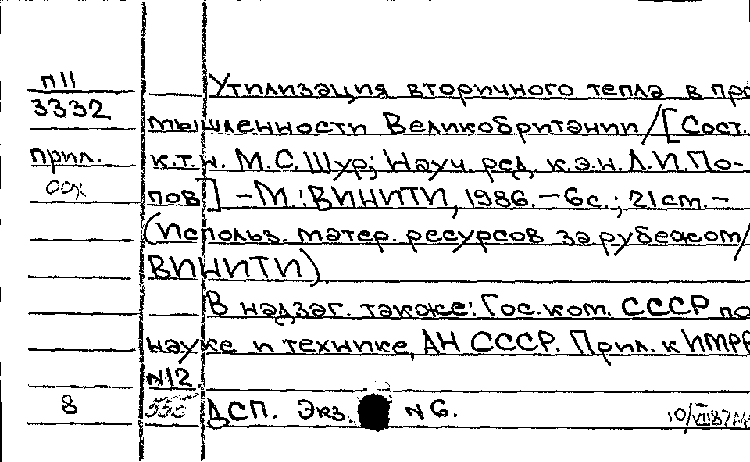 П11
3332
прил.
оох
8
Утилизация вторичного тепла в про
мышленности Великобритании/[Сост.
к.т.н. М.С.Шур; Науч. ред. к.э.н. Л.И.По-
пов] -М.: ВИНИТИ, 1986.-6с.; 21см.-
(Использ. матер. ресурсов за рубежом/
ВИНИТИ).
В надзаг. также: Гос.ком. СССР по
науке и технике, АН СССР. Прил. к ИМРР
N12.
ДСП. Экз. N6.